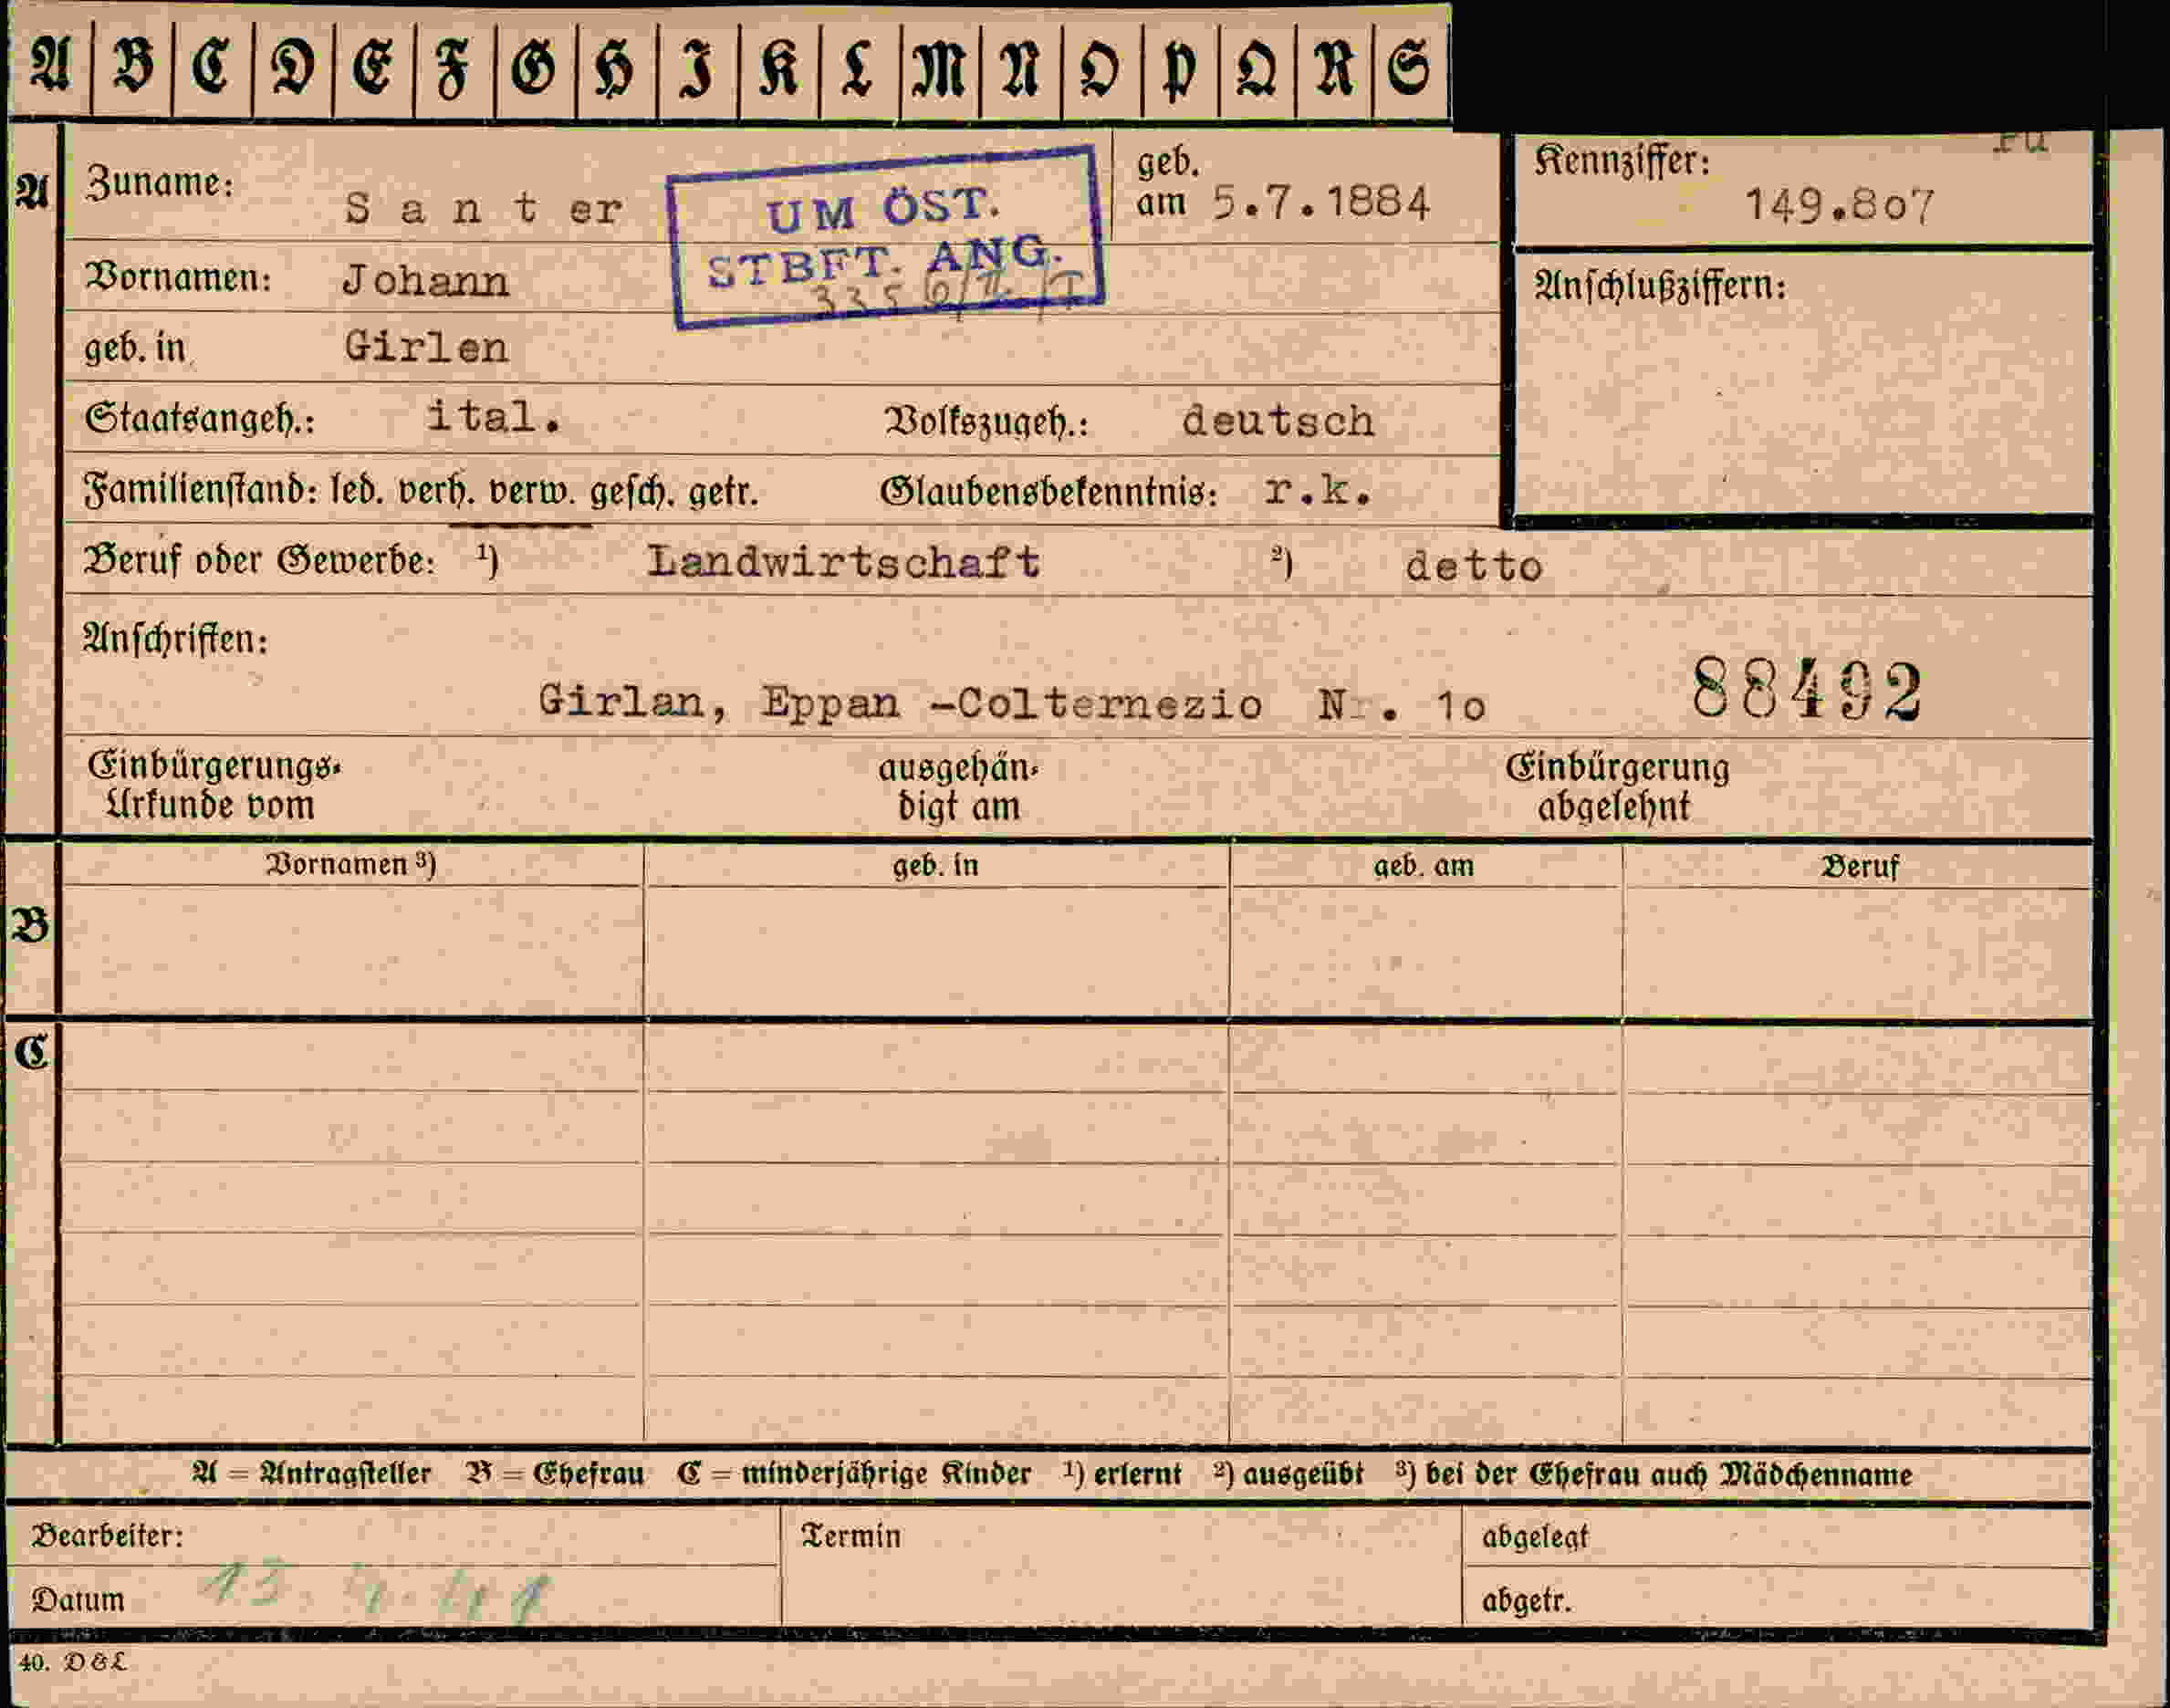 A B C D E F G H I K L M N O P Q R S
A
Zuname: Santer
geb. am 5.7.1884
UM ÖST.
STBFT. ANG.
Kennziffer: 149.8o7
Vornamen: Johann
Anschlußziffern:
geb. in Girlen
Staatsangeh.: ital. Volkszugeh.: deutsch
Familienstand: led. verh. verw. gesch. getr. Glaubensbekenntnis: r.k.
Beruf oder Gewerbe: ¹) Landwirtschaft ²) detto
Anschriften:
Girlan, Eppan -Colternezio N . 1o 88492
Einbürgerungs-
Urkunde vom
ausgehän-
digt am
Einbürgerung
abgelehnt
Vornamen ³) geb. in geb. am Beruf
B
C
A = Antragsteller B = Ehefrau C = minderjährige Kinder ¹) erlernt ²) ausgeübt ³) bei der Ehefrau auch Mädchenname
Bearbeiter: Termin abgelegt
Datum abgetr.
40. D&L